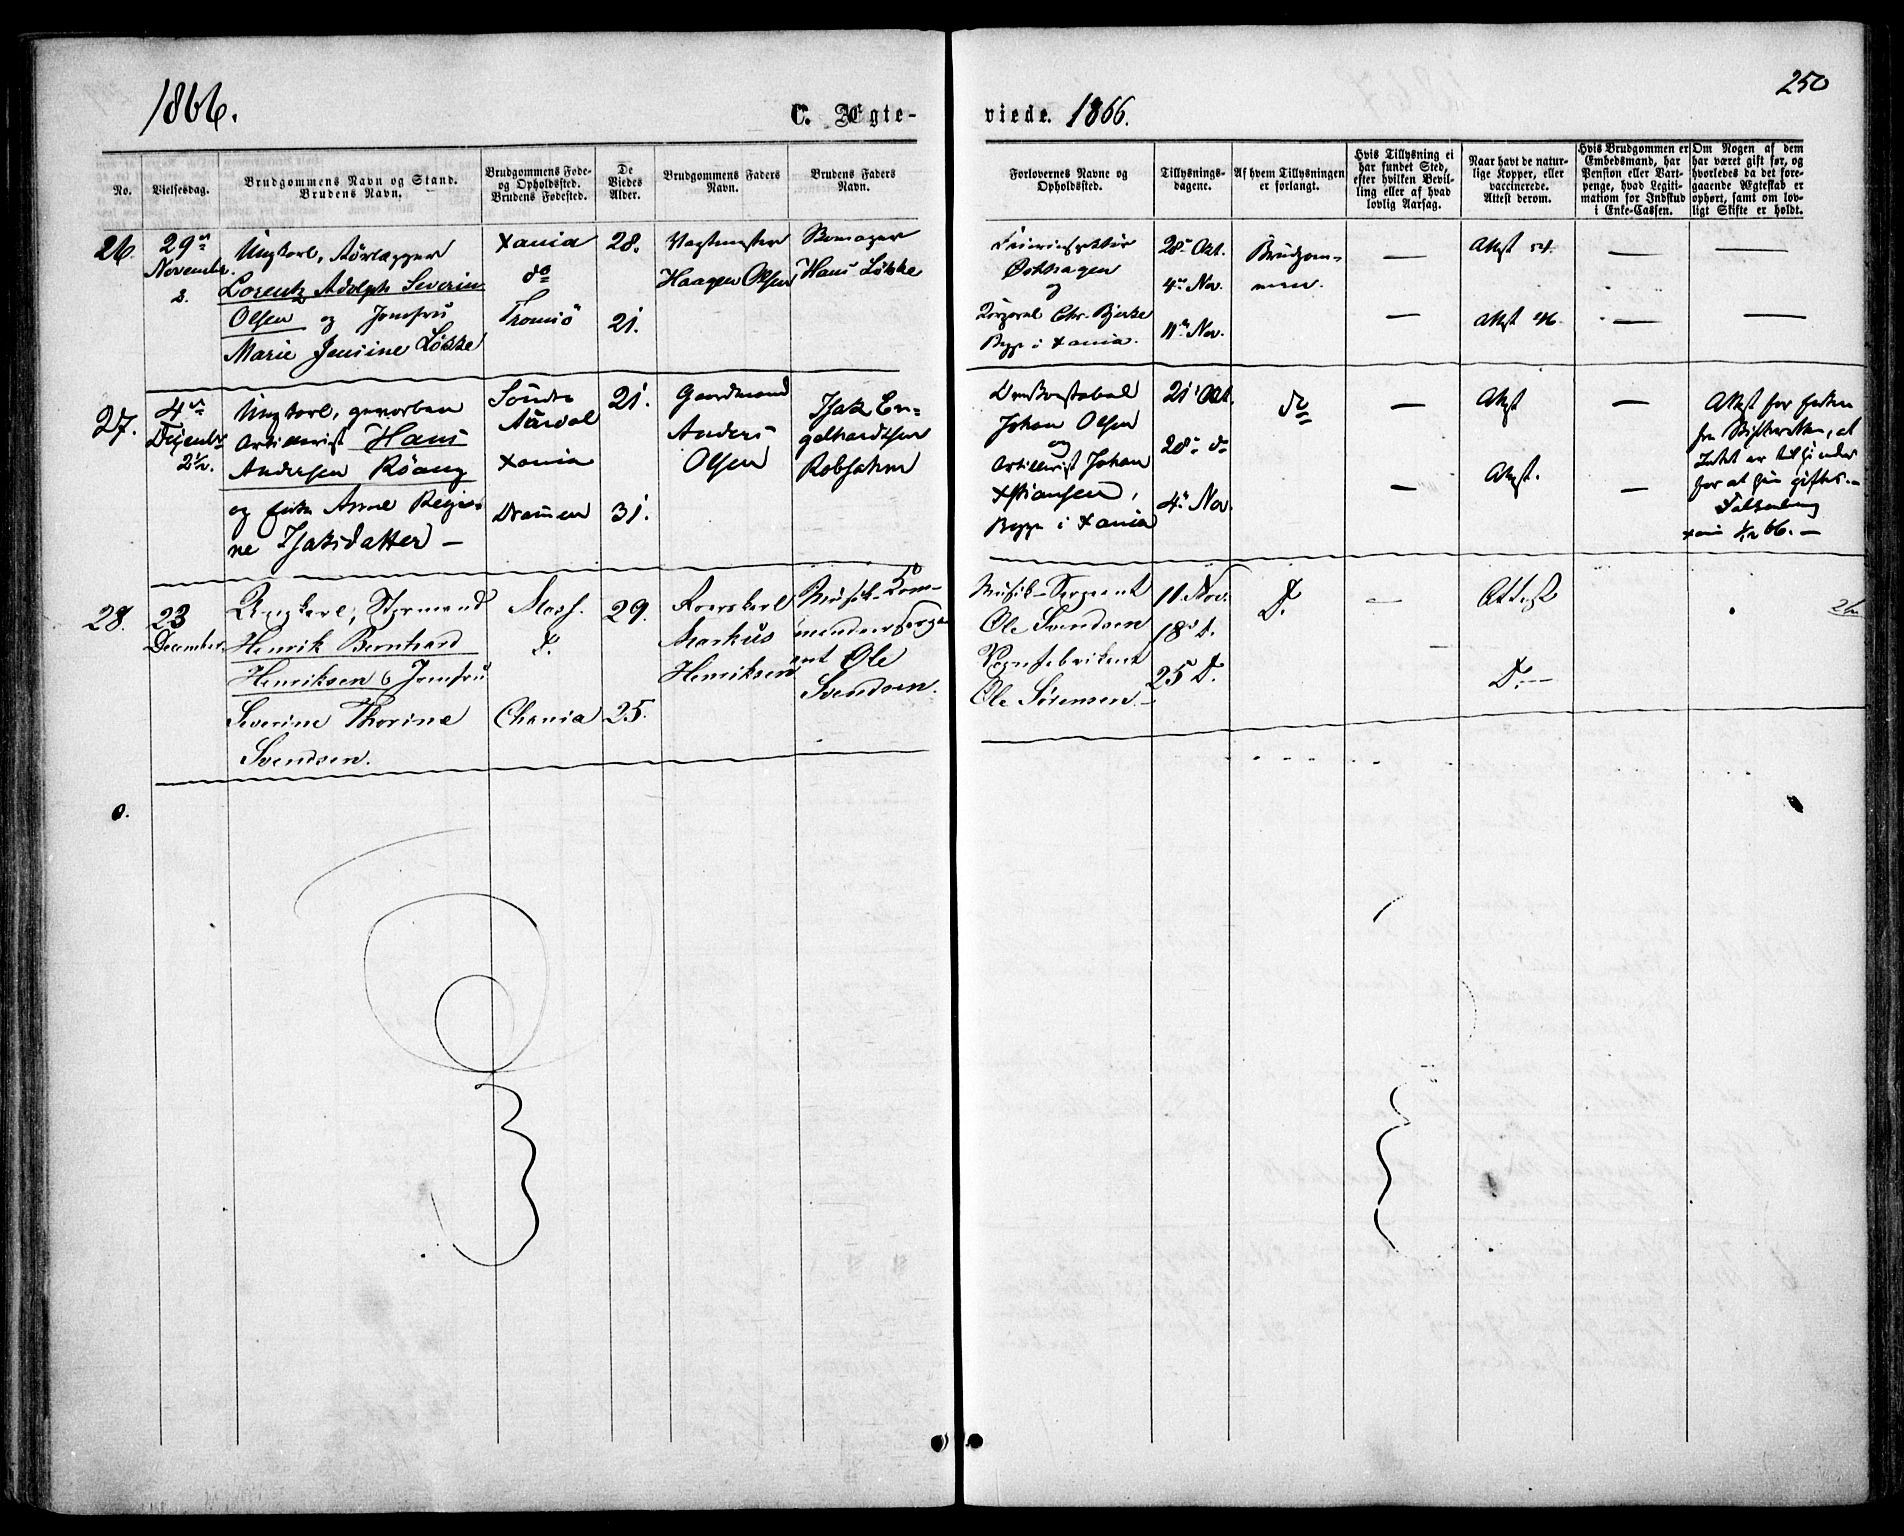 1866.
C. Ægte-
viede. 1866.
250
No.
Vielsesdag.
Brudgommens Navn og Stand.
Brudens Navn.
Brudgommens Føde-
og Opholdssted.
Brudens Fødested.
De
Viedes
Alder.
Brudgommens Faders
Navn.
Brudens Faders
Navn.
Forlovernes Navne og
Opholdssted.
Tillysnings-
dagene.
Af hvem Tillysningen
er forlangt.
Hvis Tillysning ei
har fundet Sted,
efter hvilken Bevil-
ling eller af hvad
lovlig Aarsag.
Naar havt de natur-
lige Kopper, eller
vaccinerede.
Attest derom.
Hvis Brudgommen er
Embedsmand, har
Pension eller Vart-
penge, hvad Legiti-
mation for Indskud
i Enke-Cassen.
Om Nogen af dem
har været gift før, og
hvorledes da det fore-
gaaende Ægteskab er
ophørt, samt om lov-
ligt Skifte er holdt.
26.
29
November
Ungkarl, Rørlægger
Lorentz Adolph Severin
Olsen og Jomfru
Marie Jensine Løkke
Xania
do
Tromsö
28.
21.
Vagtmester
Haagen Olsen
Hans Løkke
og
Chr. Bjerke
Begge i Xania.
28 Okt.
4 Nov.
11 Nov.
Brudgom-
men.
—
—
Attest 54.
Attest 46.
—
—
—
—
27.
4
Desember
2½.
Ungkarl, hverven
Artillerist Hans
Andersen Röang
og Enke Anne Regi-
ne Isaksdatter —
Söndre
Aurdal
Xania
Drammen
21.
31.
Gaardmand
Anders
Olsen
Isak En-
gelhardtsen
Robsahm
Johan Olsen
og
Artillerist Johan
Xstiansen,
Begge i Xania
21 Okt.
28 do
4 Nov.
do
—
—
Attest
Attest.
—
—
Attest for Enken
fra Skifteretten, at
Intet er til Hinder
for at hun giftes.—
28.
23
December.
Ungkarl, Styrmand
Henrik Bernhard
Henriksen & Jomfru
Severine Thorine
Svendsen.
Moss.
D.
Chania
29.
25.
Markus
Henriksen
Musik-Kom-
mandeersergeant
Ole
Svendsen.
Musik-Sergeant
Ole Svendsen
Vognfabrikant
Ole Sørensen.
11 Nov.
18 D.
25 D.
D.
—
Attest
D.—